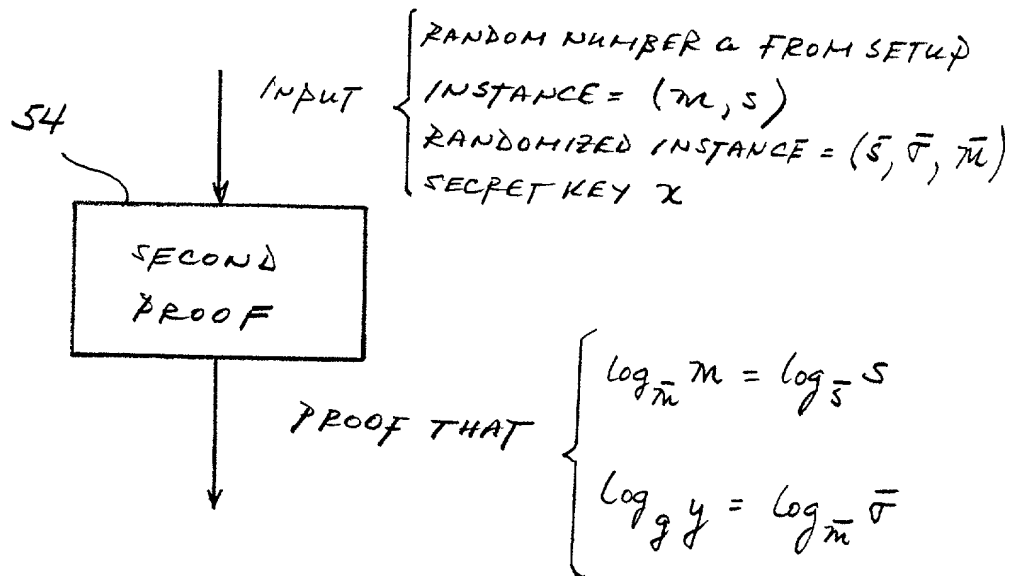 RANDOM NUMBER a FROM SETUP
INPUT
INSTANCE = (m, s)
RANDOMIZED INSTANCE = (s̄, σ̄, m̄)
SECRET KEY x
54
SECOND
PROOF
PROOF THAT
log_m̄ m = log_s̄ s
log_g y = log_m̄ σ̄